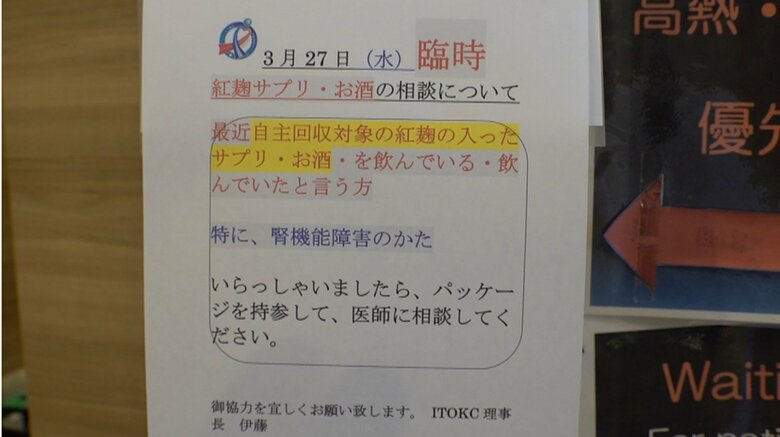 3月27日（水）臨時
紅麹サプリ・お酒の相談について
最近自主回収対象の紅麹の入った
サプリ・お酒・を飲んでいる・飲
んでいたと言う方
特に、腎機能障害のかた
いらっしゃいましたら、パッケー
ジを持参して、医師に相談してく
ださい。
御協力を宜しくお願い致します。 ITOKC 理事
長 伊藤
高熱・
優先
Waiti